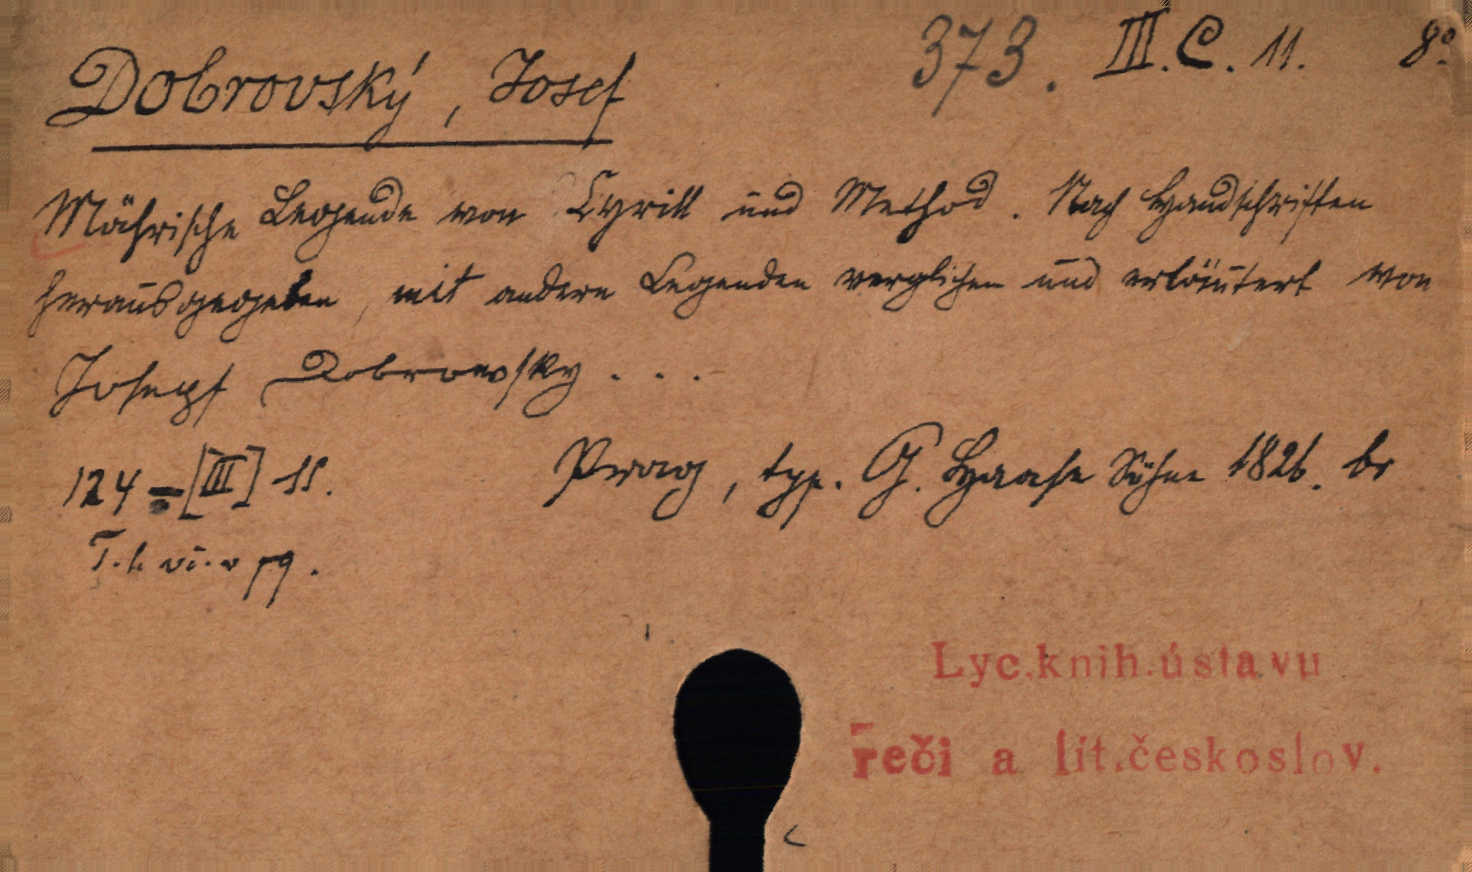 373. III. C. 11. 8°.
Dobrovský, Josef
Mährische Legende von Cyrill und Method. Nach Handschriften
herausgegeben, mit andern Legenden verglichen und erläutert von
Joseph Dobrowsky ...
124 = [III] ss. Prag, typ. G. Haase Söhne 1826. br
Lyc. knih. ústavu
řeči a lit. českoslov.